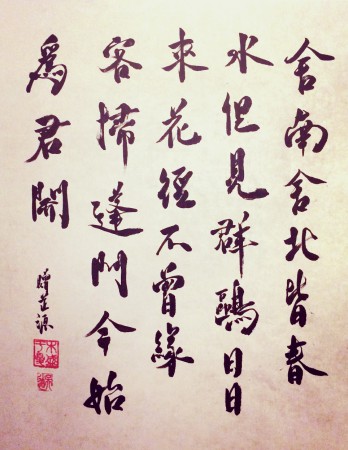 舍南舍北皆春
水但見群鷗日日
來花徑不曾緣
客掃蓬門今始
為君開